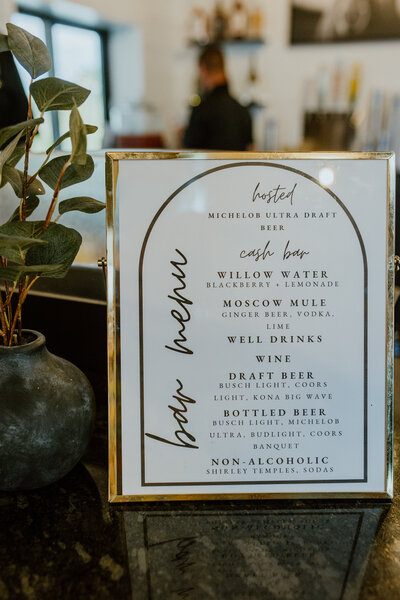 bar menu
hosted
MICHELOB ULTRA DRAFT
BEER
cash bar
WILLOW WATER
BLACKBERRY + LEMONADE
MOSCOW MULE
GINGER BEER, VODKA,
LIME
WELL DRINKS
WINE
DRAFT BEER
BUSCH LIGHT, COORS
LIGHT, KONA BIG WAVE
BOTTLED BEER
BUSCH LIGHT, MICHELOB
ULTRA, BUDLIGHT, COORS
BANQUET
NON-ALCOHOLIC
SHIRLEY TEMPLES, SODAS